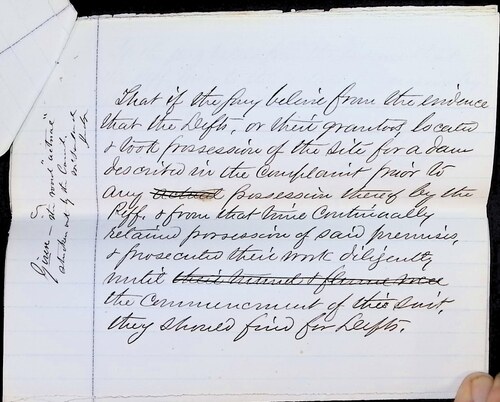 That if the jury believe from the evidence
that the Defts, or their grantors, located
& took possession of the site for a dam
described in the complaint prior to
any actual possession thereof by the
Plff. & from that time continually
retained possession of said premises,
& prosecuted their work diligently
until their tunnel & flume were
the commencement of this suit,
they should find for Defts.
Given — the word "actual"
stricken out by the Court.